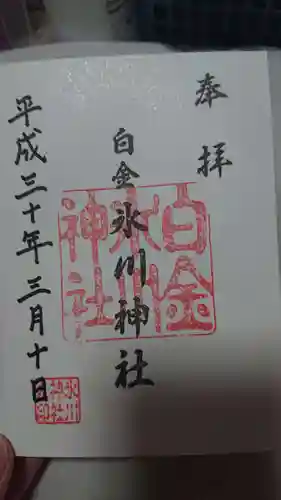 奉拝
白金氷川神社
平成三十年三月十日
白金
氷川
神社
氷川
神社
印